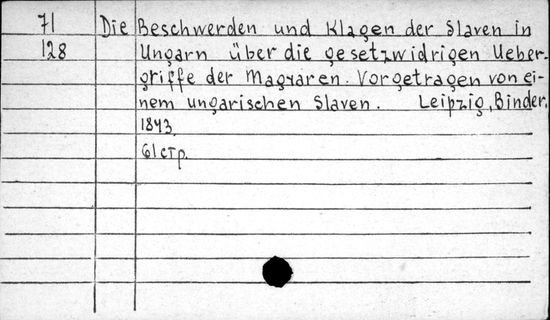 71 Die Beschwerden und Klagen der Slaven in
128 Ungarn über die gesetzwidrigen Ueber-
griffe der Magyaren. Vorgetragen von ei-
nem ungarischen Slaven. Leipzig, Binder,
1843.
61 стр.